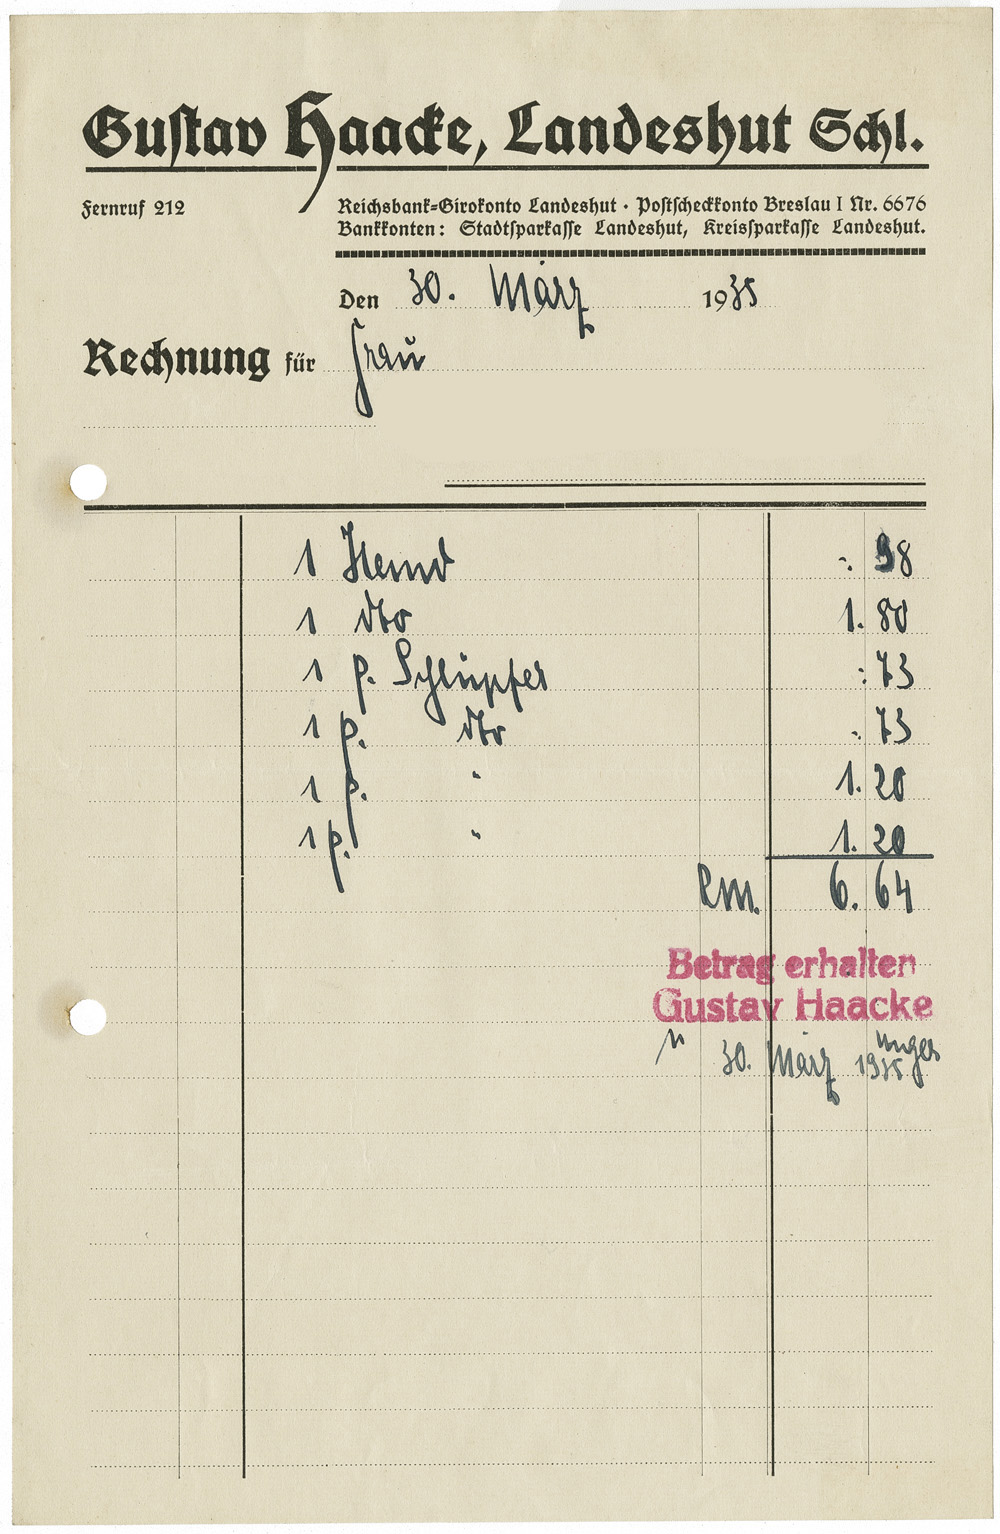 Gustav Haacke, Landeshut Schl.
Fernruf 212
Reichsbank-Girokonto Landeshut · Postscheckkonto Breslau I Nr. 6676
Bankkonten: Stadtsparkasse Landeshut, Kreissparkasse Landeshut.
Den 30. März 1935
Rechnung für Frau
1 Hemd -. 98
1 dto 1. 80
1 p. Schlüpfer -. 73
1 p. dto -. 73
1 p. " 1. 20
1 p. " 1. 20
Rm. 6. 64
Betrag erhalten
Gustav Haacke
30. März 1935